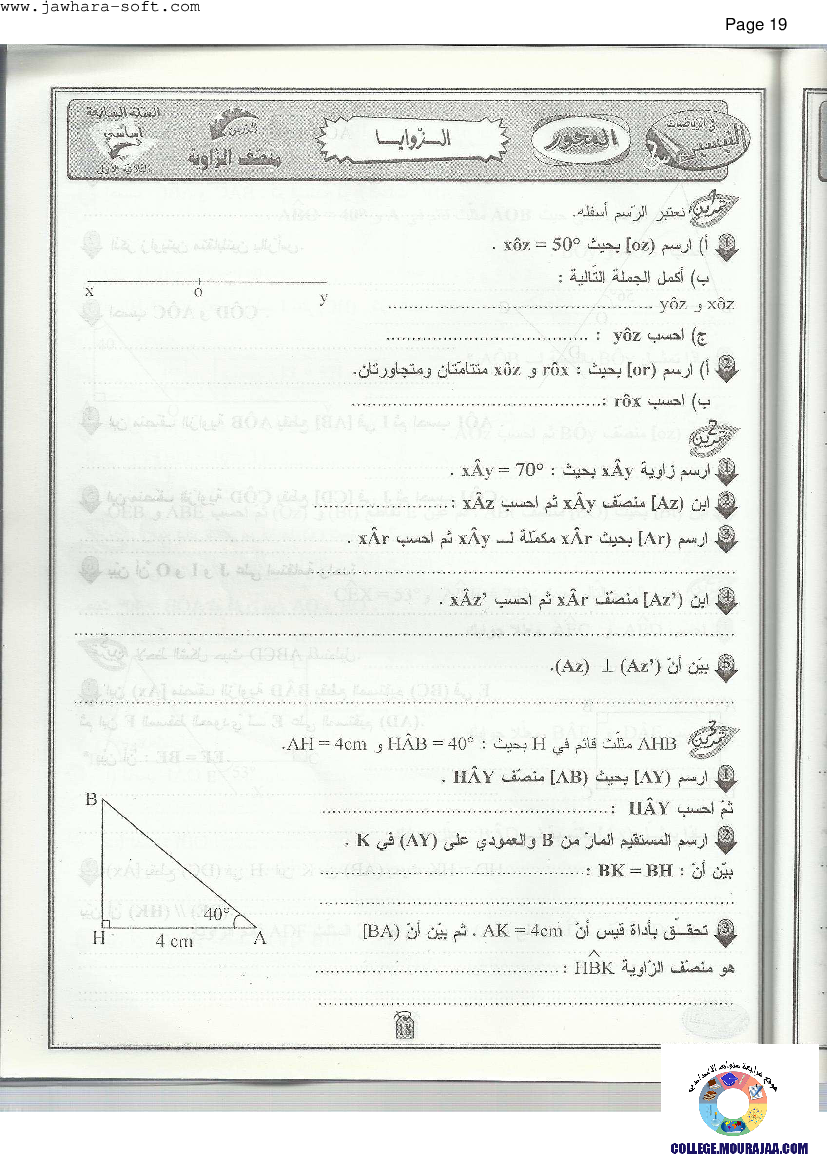 www.jawhara-soft.com
Page 19
في الرياضيات
التيسير
المحور
الـــزّوايـــا
الدرس
منصّف الزّاوية
السنة السابعة
أساسي
الثلاثي الأول
تمرين 1 نعتبر الرّسم أسفله.
1 أ) ارسم [oz) بحيث xôz = 50° .
ب) أكمل الجملة التّالية :
x o y
xôz و yôz ..................................................
ج) احسب yôz : ......................................
2 أ) ارسم [or) بحيث : rôx و xôz متتامّتان ومتجاورتان.
ب) احسب rôx :...............................................
تمرين 2
1 ارسم زاوية xÂy بحيث : xÂy = 70° .
2 ابن [Az) منصّف xÂy ثم احسب xÂz : ...........................
3 ارسم [Ar) بحيث xÂr مكملة لــ xÂy ثم احسب xÂr .
..................................................................
4 ابن [Az’) منصّف xÂr ثم احسب xÂz’ .
..................................................................
5 بيّن أنّ (Az) ⊥ (Az’).
..................................................................
تمرين 3 AHB مثلّث قائم في H بحيث : HÂB = 40° و AH = 4cm.
1 ارسم [AY) بحيث [AB) منصّف HÂY .
ثمّ احسب HÂY : ..................................................
2 ارسم المستقيم المارّ من B والعمودي على (AY) في K .
بيّن أنّ : BK = BH : ..................................................
..................................................................
3 تحقــّق بأداة قيس أنّ AK = 4cm . ثم بيّن أنّ [BA)
هو منصّف الزّاوية HB̂K : ..................................................
..................................................................
B
40°
H 4 cm A
18
موقع مراجعة
COLLEGE.MOURAJAA.COM